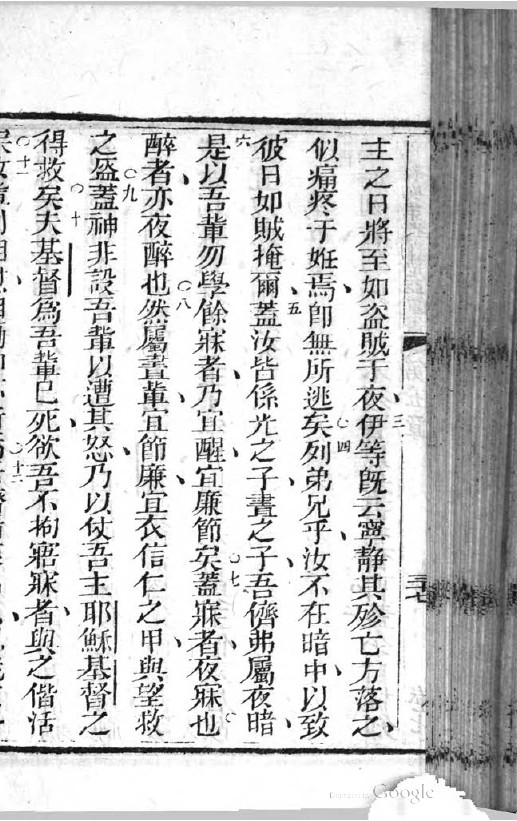 主之日將至如盜賊于夜伊等既云寧靜其殄亡方落之
三
似痛疼于姙焉卽無所逃矣列弟兄乎汝不在暗中以致
四
彼日如賊掩爾蓋汝皆係光之子晝之子吾儕弗屬夜暗
五
是以吾輩勿學餘寐者乃宜醒宜廉節矣蓋寐者夜寐也
六
七
醉者亦夜醉也然屬晝輩宜節廉宜衣信仁之甲與望救
八
之盔蓋神非設吾輩以遭其怒乃以仗吾主耶穌基督之
九
得救矣夫基督爲吾輩已死欲吾不拘寤寐者與之偕活
十
十一
十二
三十七
Google